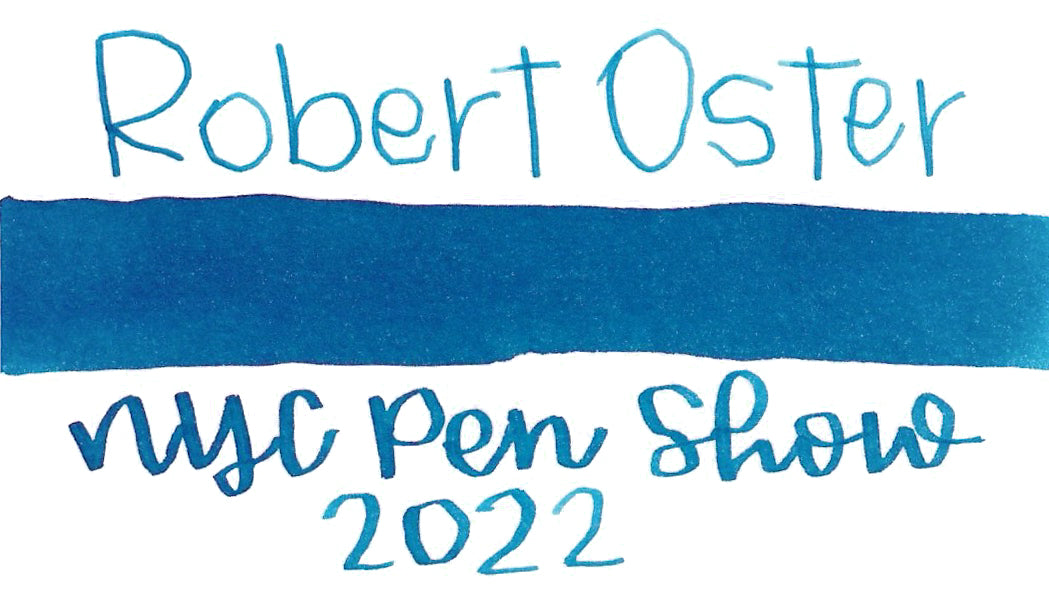 Robert Oster
nyc Pen Show
2022